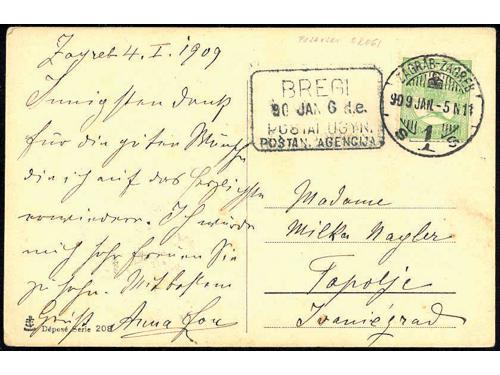 Zagreb 4. I. 1909
Innigsten Dank
für die guten Wünsche
die ich auf das herzlichste
erwiedere. Ich würde
mich sehr freuen Sie
zu sehn. Mit bestem
Gruß Anna
Déposé Serie 208
BREGI
90 JAN 6 d.e.
POSTAI ÜGYN.
POŠTAN. AGENCIJA
ZÁGRÁB-ZAGREB
909 JAN.-5 N11
1
S S
Madame
Milka Nagler
Topolje
Ivanićgrad